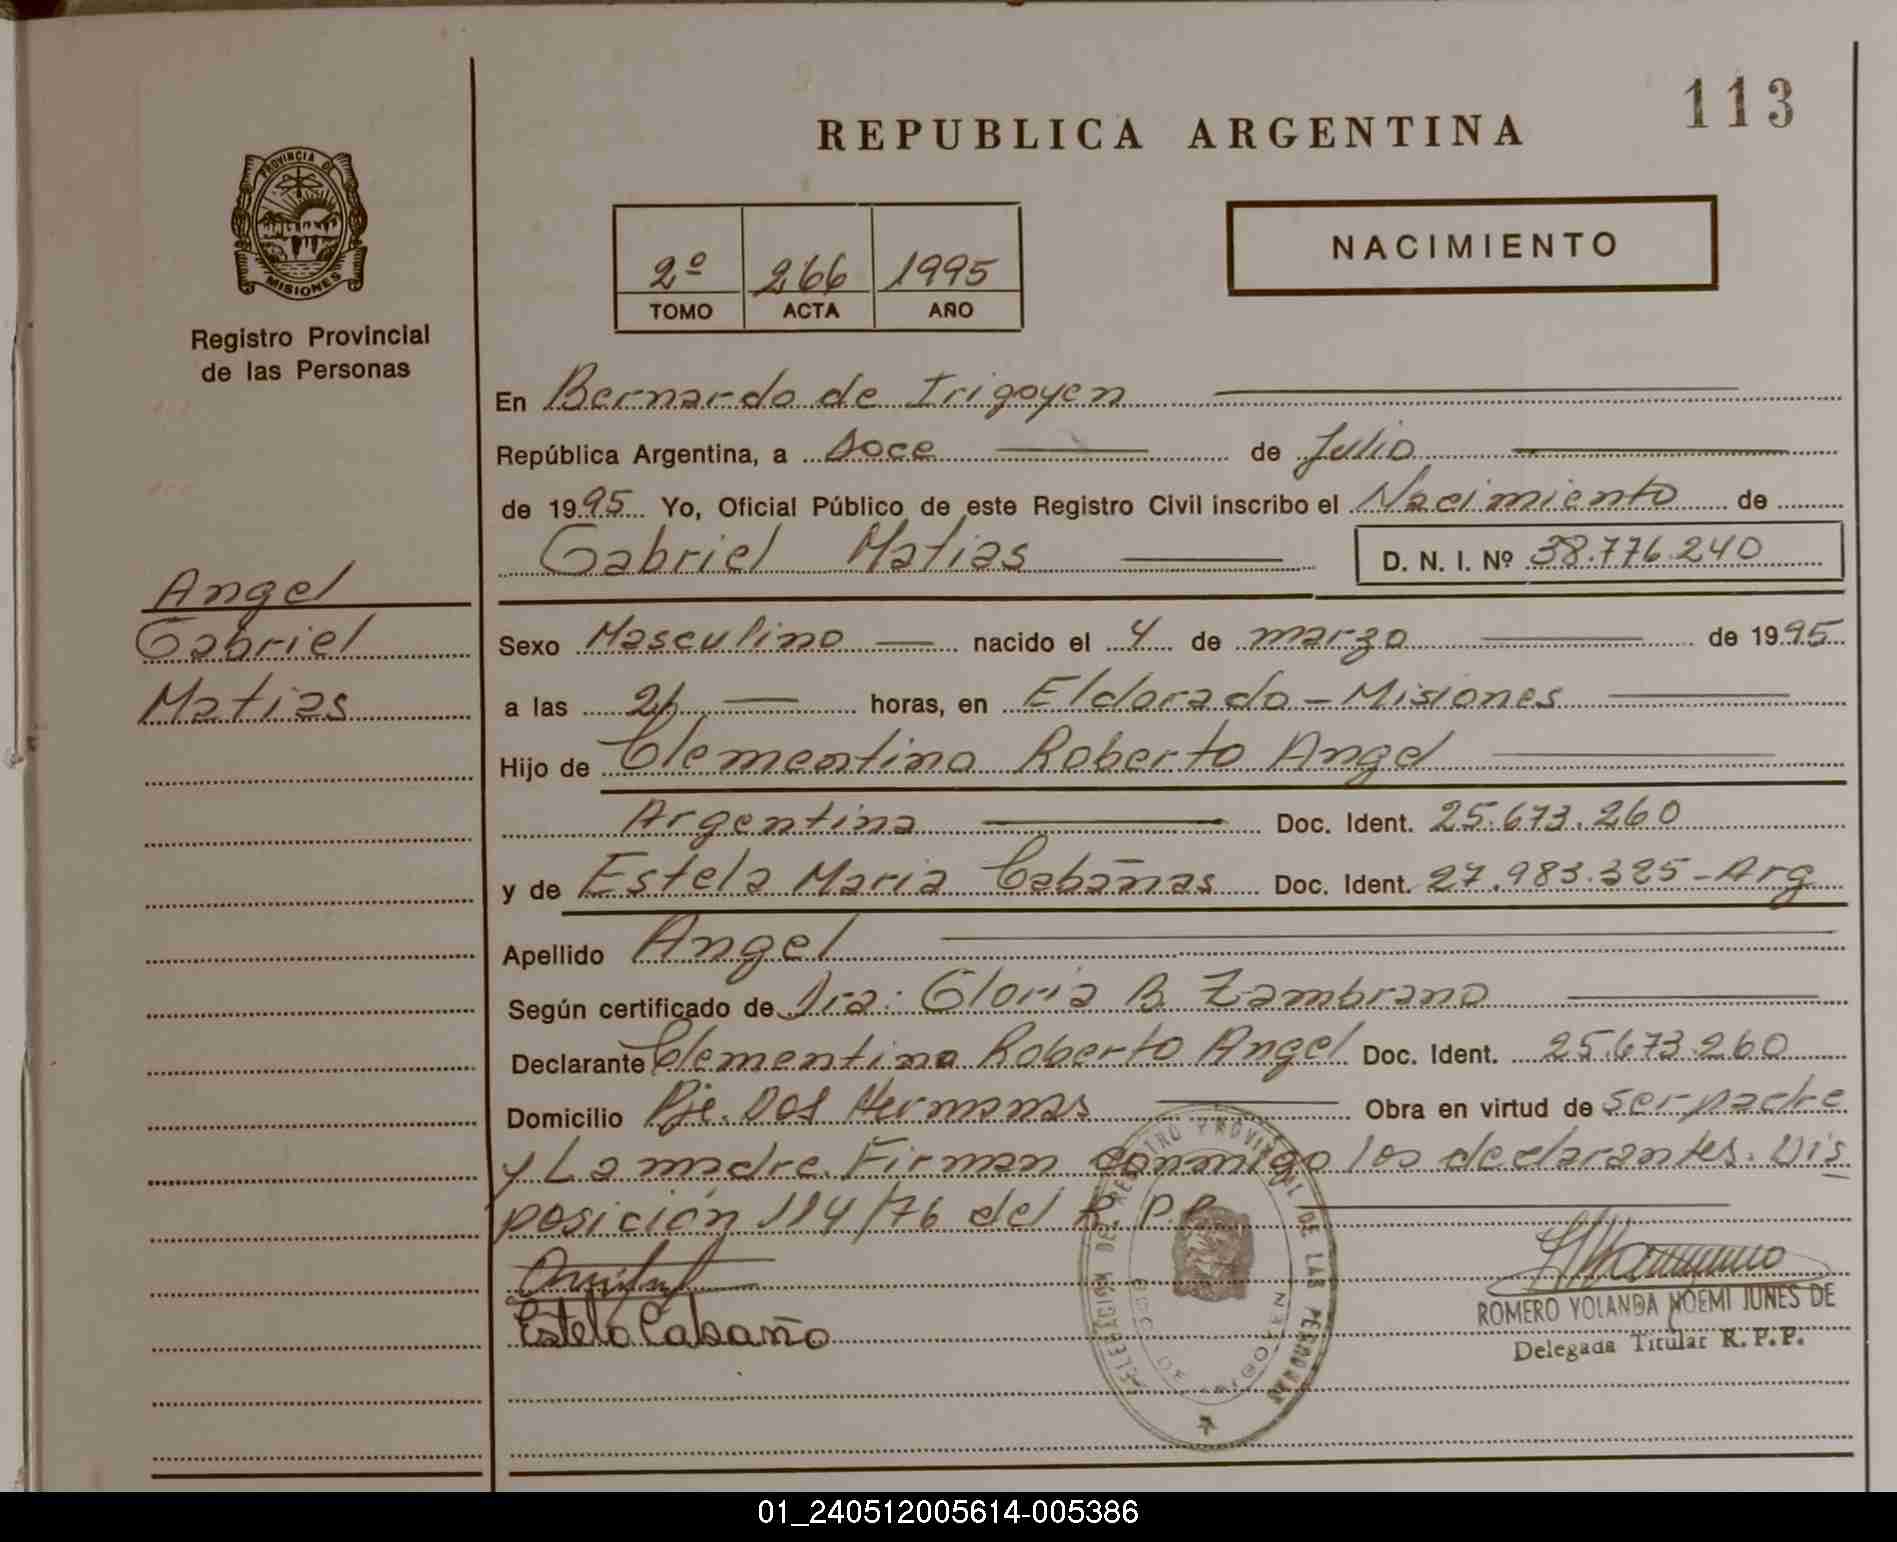 113
REPUBLICA ARGENTINA
PROVINCIA DE
MISIONES
Registro Provincial
de las Personas
NACIMIENTO
2º 266 1995
TOMO ACTA AÑO
En Bernardo de Irigoyen
República Argentina, a Doce de Julio
de 1995 Yo, Oficial Público de este Registro Civil inscribo el Nacimiento de
Gabriel Matias D. N. I. Nº 38.776.240
Angel
Gabriel
Matias
Sexo Masculino nacido el 4 de marzo de 1995
a las 21 horas, en Eldorado - Misiones
Hijo de Clementino Roberto Angel
Argentina Doc. Ident. 25.673.260
y de Estela Maria Cabañas Doc. Ident. 27.983.325 - Arg
Apellido Angel
Según certificado de Dra: Gloria B. Zambrano
Declarante Clementino Roberto Angel Doc. Ident. 25.673.260
Domicilio Pje. Dos Hermanas Obra en virtud de ser padre
y La madre. Firman conmigo los declarantes. Dis
posición 114/76 del R. P. P.
Estela Cabaño
DELEGACIÓN DE REGISTRO PROVINCIAL DE LAS PERSONAS
BDO. DE IRIGOYEN
ROMERO YOLANDA NOEMI JUNES DE
Delegada Titular R. P. P.
01_240512005614-005386